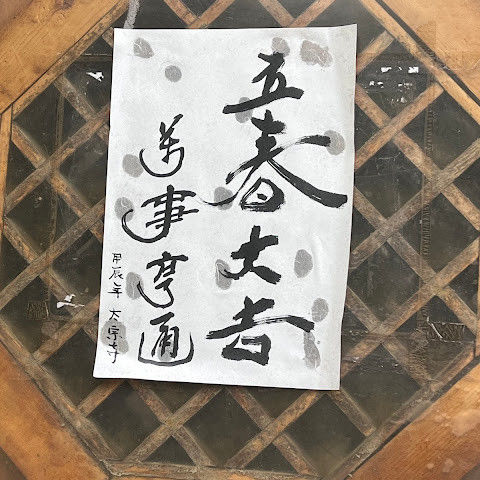 立春大吉
萬事亨通
甲辰年 太宗寺